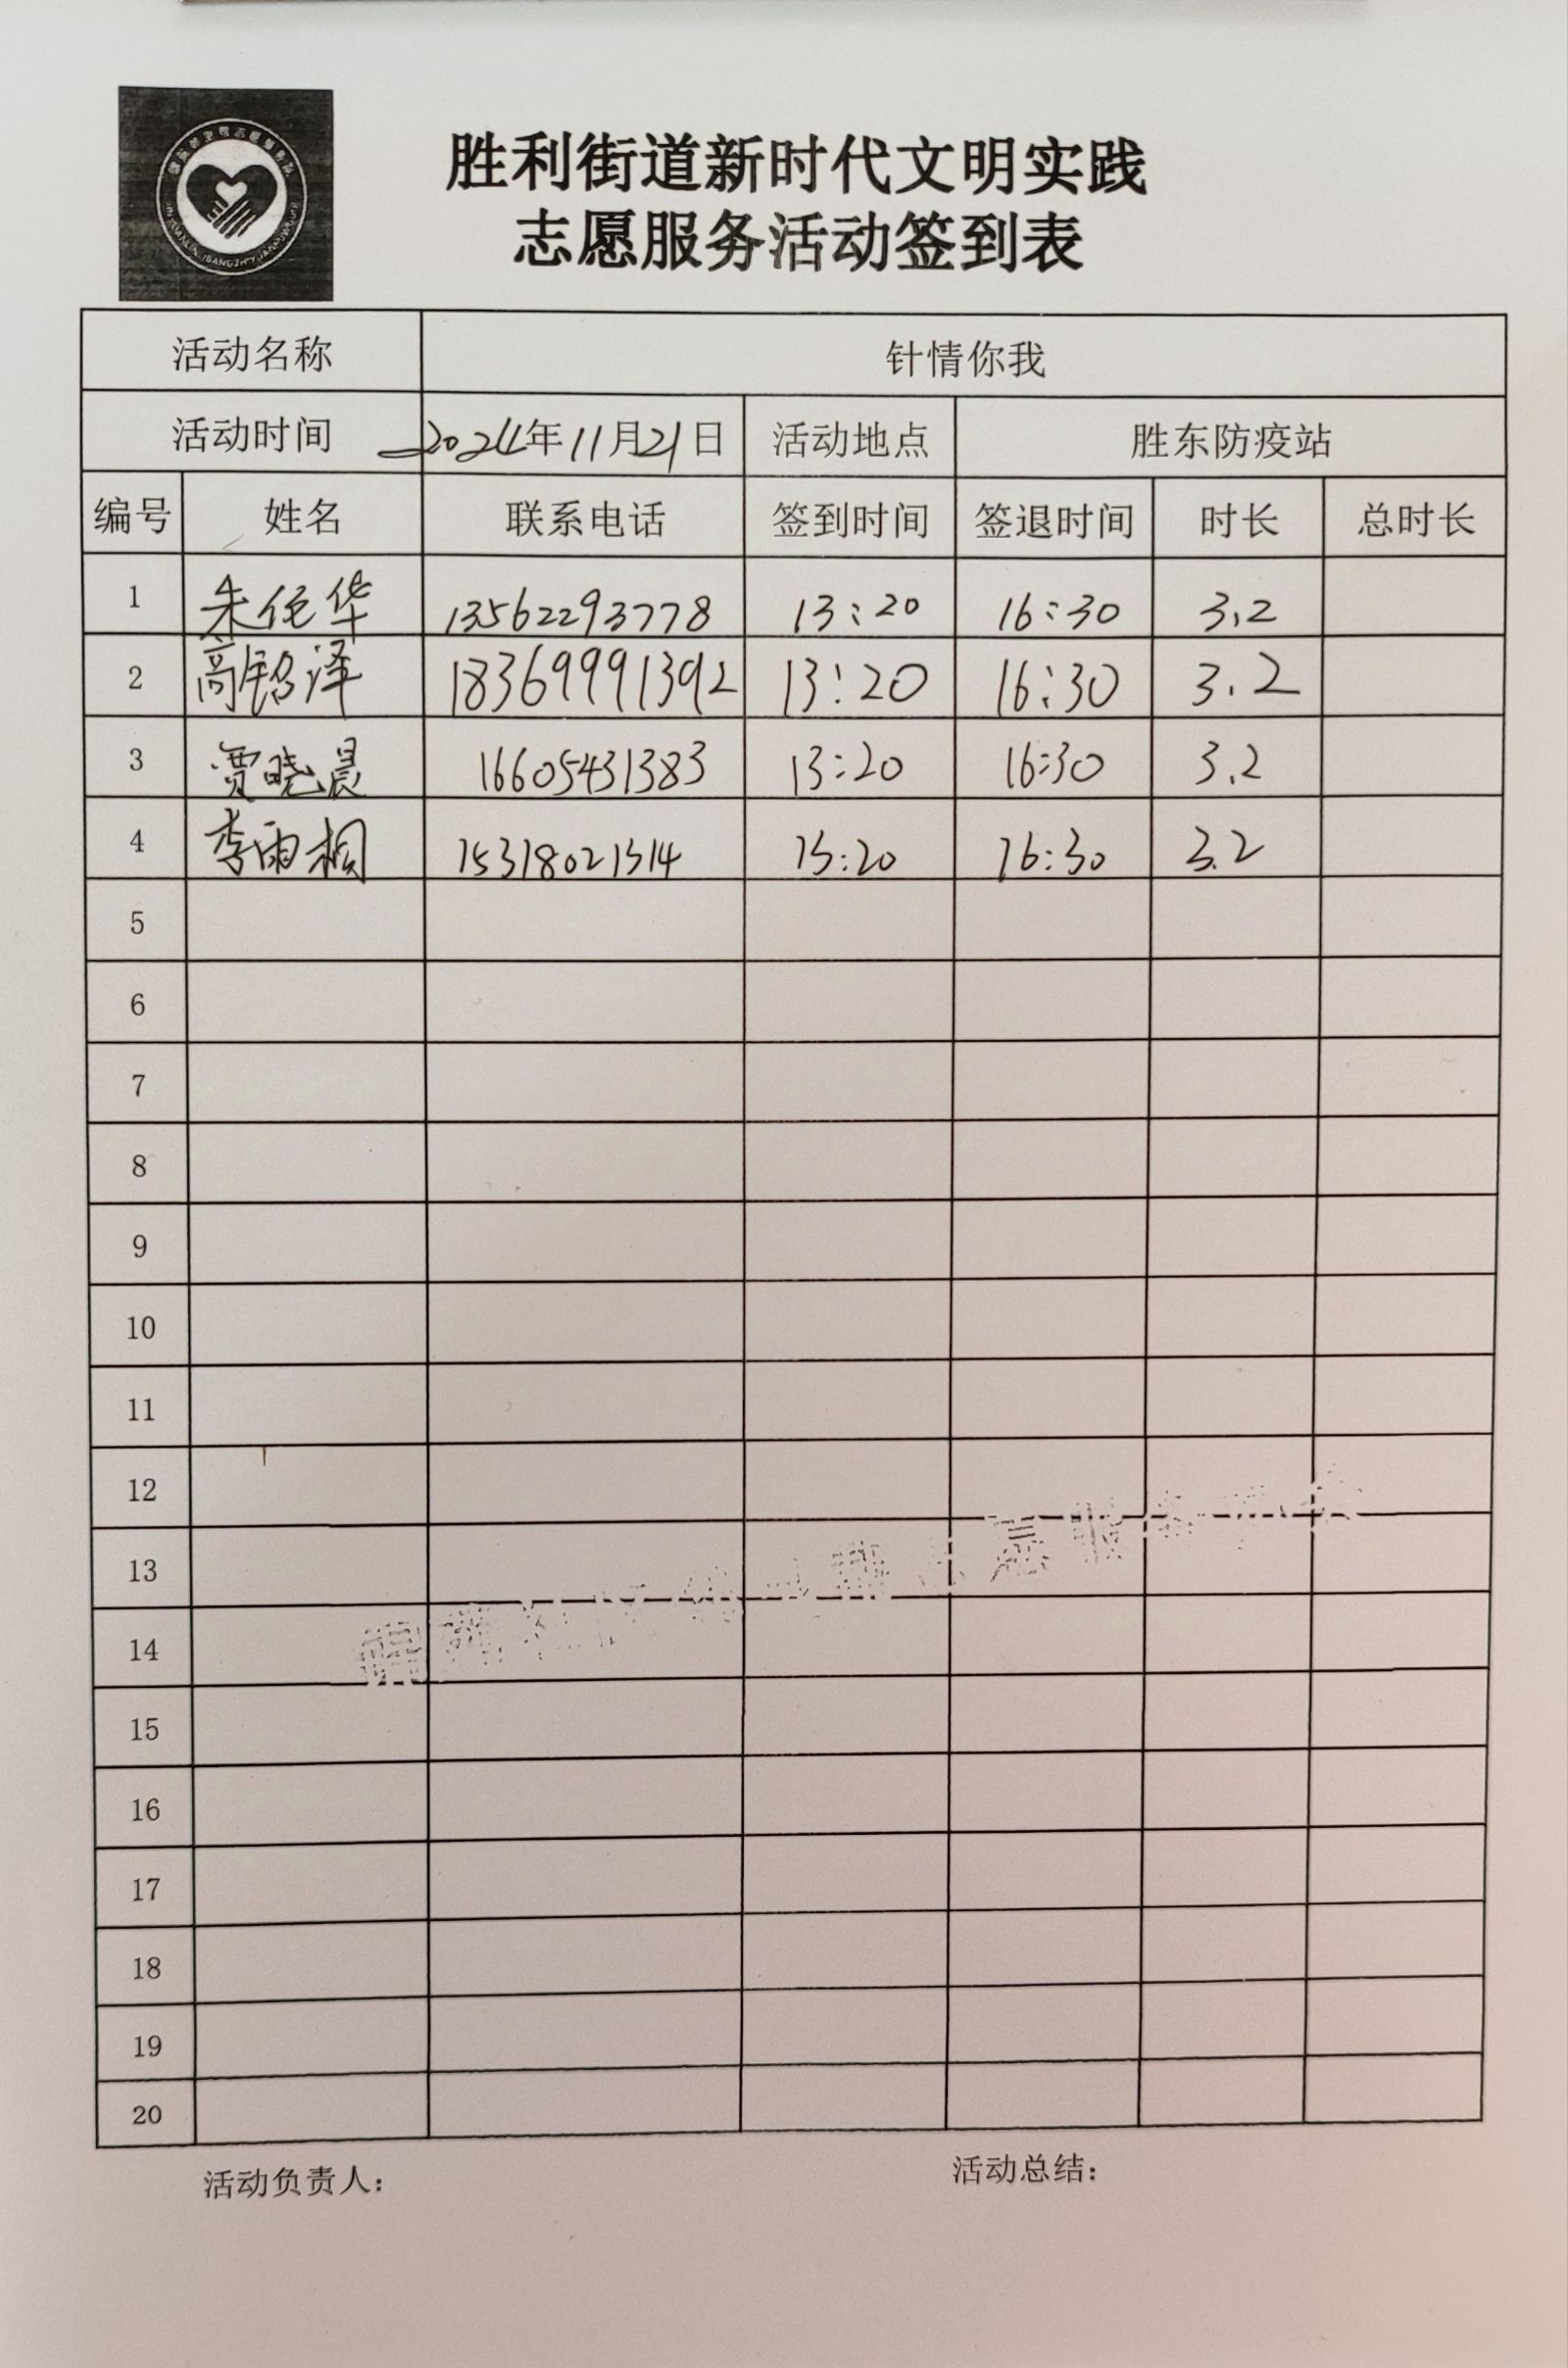 胜利街道新时代文明实践
志愿服务活动签到表
活动名称 针情你我
活动时间 2024年11月21日 活动地点 胜东防疫站
编号 姓名 联系电话 签到时间 签退时间 时长 总时长
1 朱任华 13562293778 13:20 16:30 3.2
2 高铭泽 18369991392 13:20 16:30 3.2
3 贾晓晨 16605431383 13:20 16:30 3.2
4 李雨桐 15318021314 13:20 16:30 3.2
5
6
7
8
9
10
11
12
13
14
15
16
17
18
19
20
活动负责人: 活动总结: